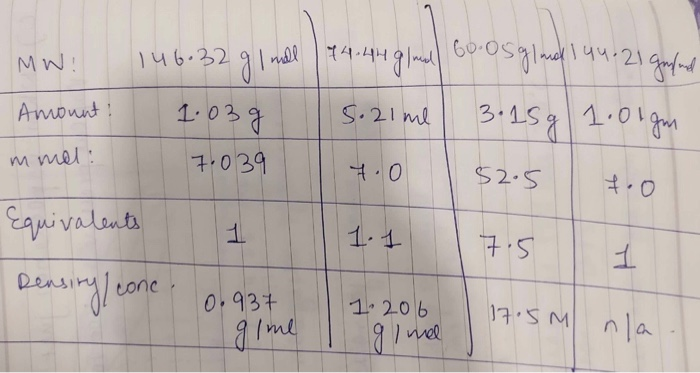 MW: 146.32 g/mol 74.44 g/mol 60.05 g/mol 144.21 gm/mol
Amount: 1.03 g 5.21 ml 3.15 g 1.01 gm
m mol: 7.039 7.0 52.5 7.0
Equivalents 1 1.1 7.5 1
Density/conc. 0.937 g/ml 1.206 g/mol 17.5 M n/a.